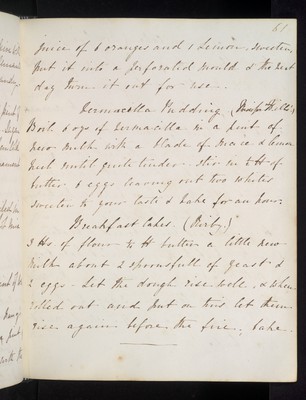 61
juice of 6 oranges and 1 Lemon. sweeten,
put it into a perforated mould & the next
day turn it out for use.
Vermacilla Pudding. (
Boil 6 ozs of Vermacilla in a pint of
new milk with a blade of Mace & lemon
peel until quite tender. Stir in ½ lb of
butter 6 eggs leaving out two whites
sweeten to your taste & bake for an hour.
Breakfast Cakes. (
3 lbs of flour ½ lb butter a little new
milk about 2 spoonsfull of yeast &
2 eggs. Let the dough rise well, & when
rolled out and put on tins let them
rise again before the fire, bake.